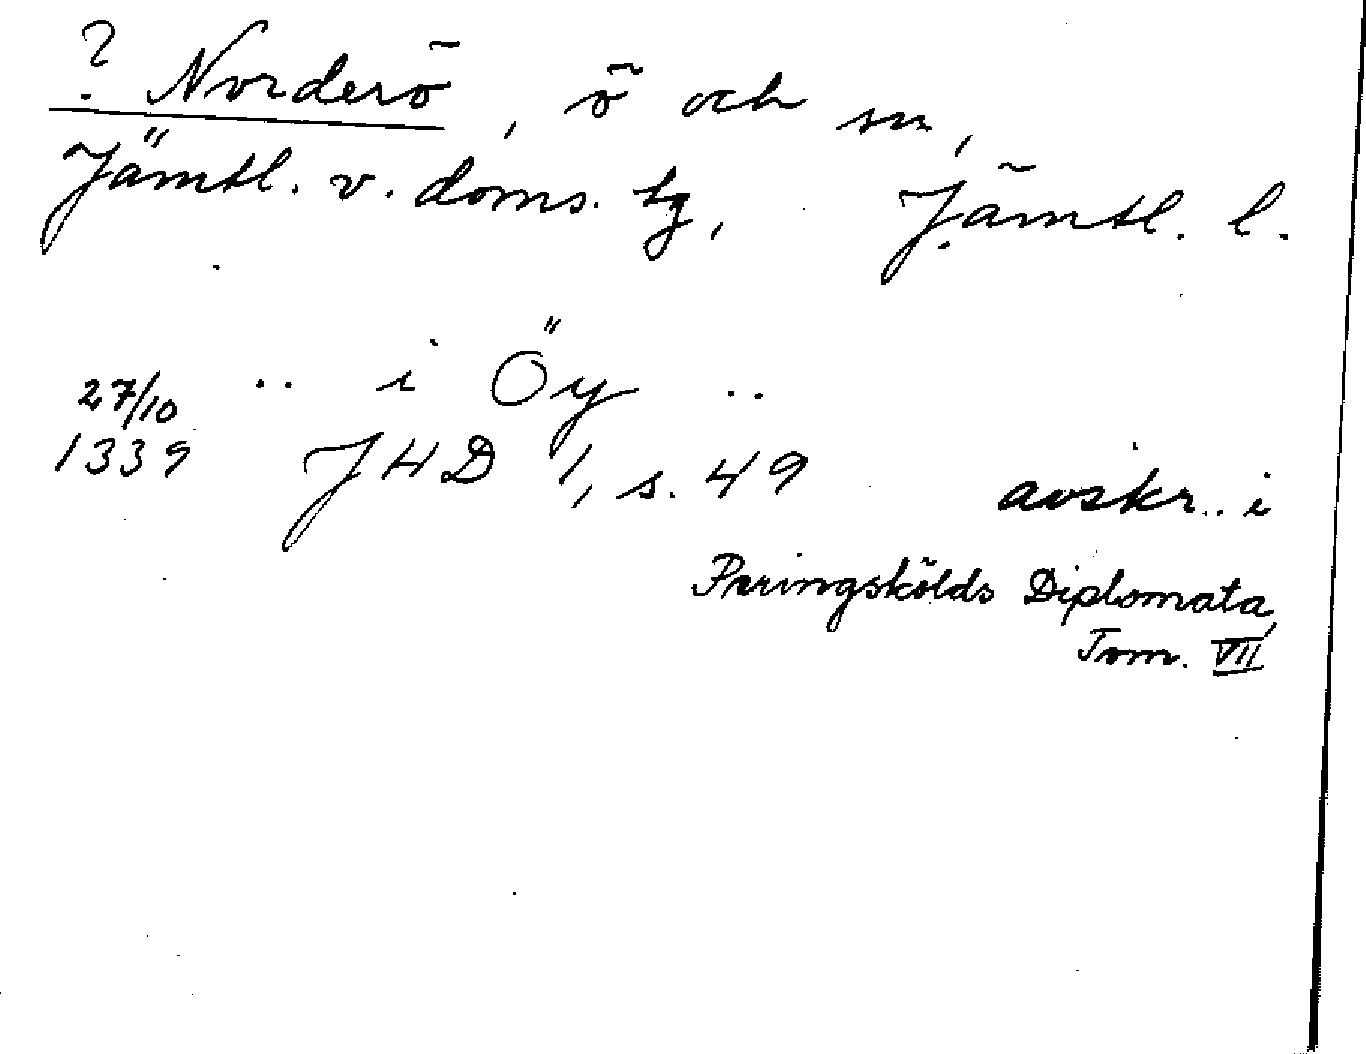 ? Norderö, ö och sn,
Jämtl. v. doms. tg, Jämtl. l.
.. i Öy ..
27/10
1339 JHD 1, s. 49 avskr. i
Peringskölds Diplomata,
Tom. VII